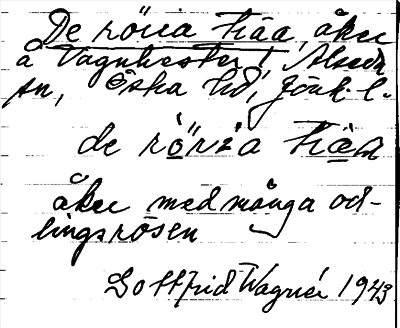 De röria tiäa, åker
å Vagnhester i Alseda
sn, Östra hd, Jönk. l.
de röria tiän
åker med många od-
lingsrösen
Gottfrid Wagnér 1943